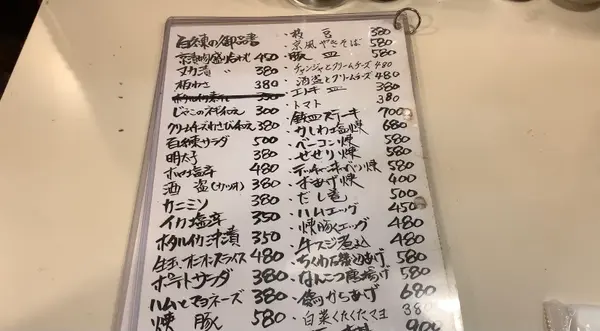 百練の御品書
京漬物盛り合わせ 450
タカ漬 〃 380
板わさ 380
じゃこのネギ和え 300
クリームチーズわさび和え 380
百練サラダ 500
明太子 380
ホルモン塩辛 480
酒盗(カツオ) 380
カニミソ 380
イカ塩辛 350
ホタルイカ沖漬 350
生玉オニオンスライス 480
ポテトサラダ 380
ハムとマヨネーズ 380
焼豚 580
・枝豆 380
・京風やきそば 580
・豚皿 580
・チャンジャとクリームチーズ 480
・酒盗とクリームチーズ 480
・エリキ皿 380
・トマト 380
・鉄皿ステーキ 700
・かしわ塩焼 680
・ベーコン焼 580
・せせり焼 580
・テッチャンキャベツ焼 580
・おあげ焼 400
・だし巻 500
・ハムエッグ 450
・焼豚エッグ 480
・牛スジ煮込 480
・ちくわ磯辺あげ 580
・なんこつ唐揚げ 580
・鶏のからあげ 680
・白菜くたくたマヨ 380
900